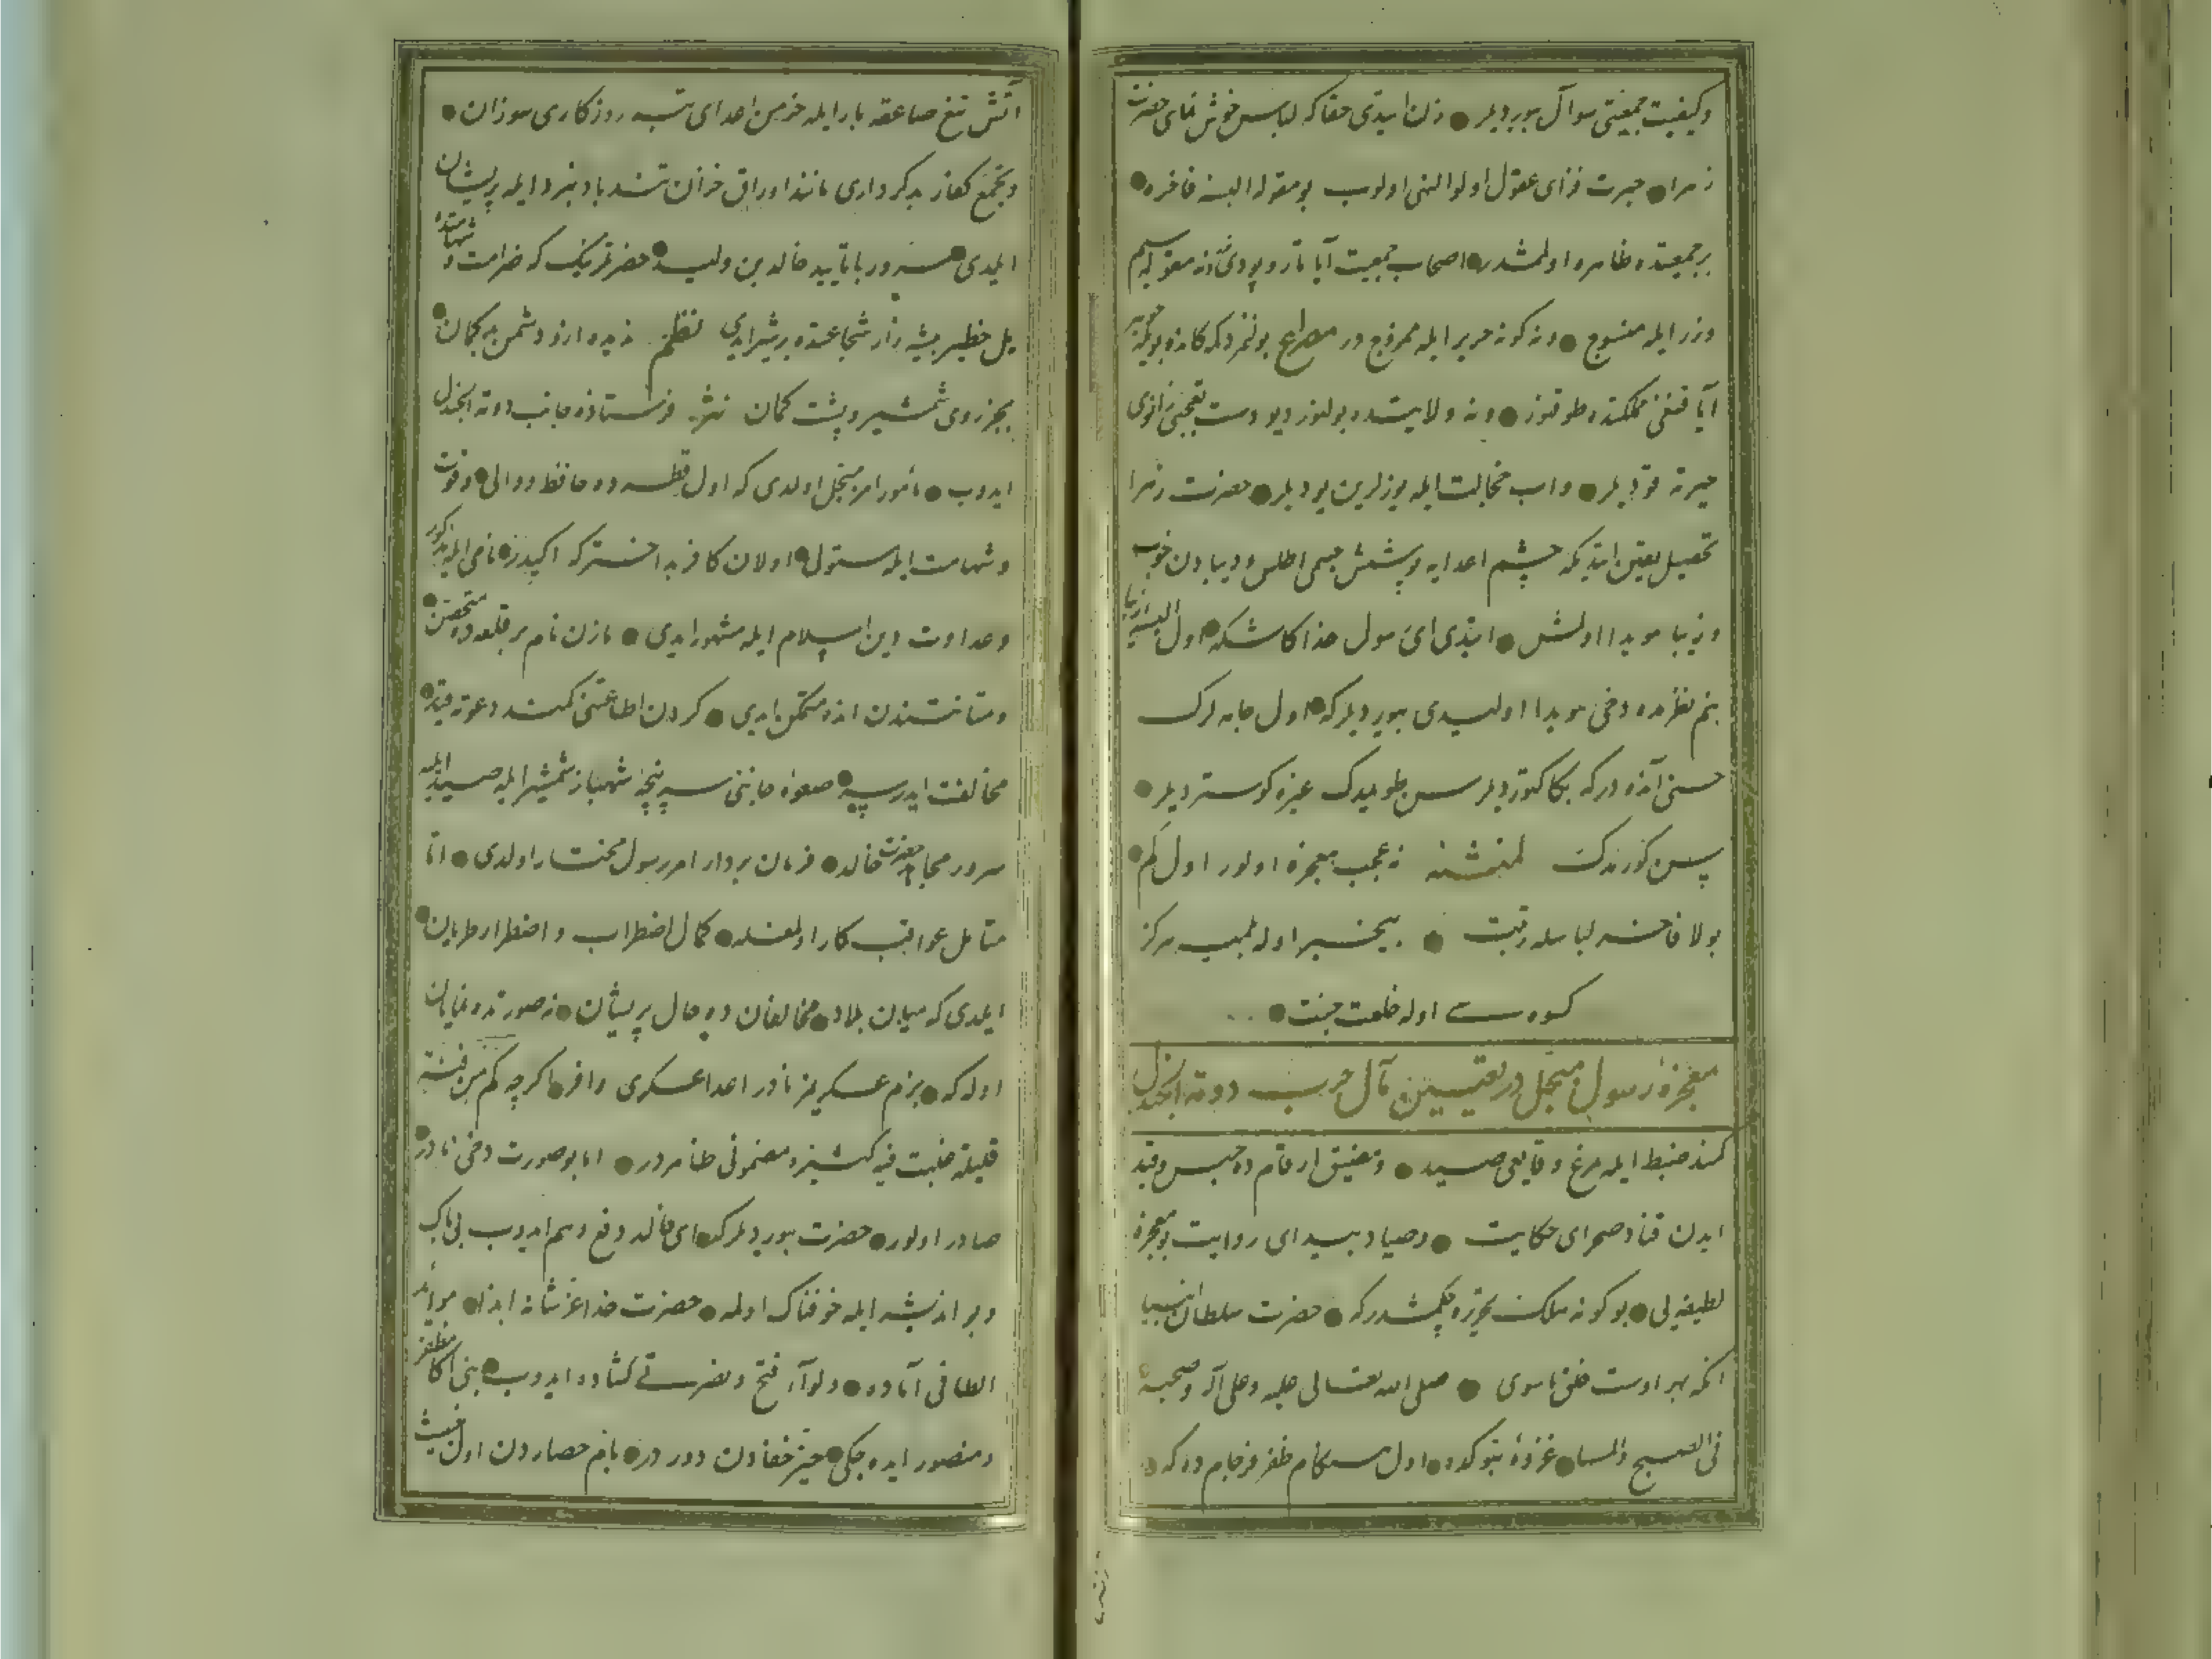 وكيفيت جمعيتى سوآل بيورديلر زن ايتدى حقا كه لباس خوش نماى حضرت
زهرا حيرت فزاى عقول اولوالنهى اولوب بو مقوله البسهٔ فاخره
بر جمعيتده ظاهر اولمشدر اصحاب جمعيت آيا تار و پودى نه مقوله سيم
وزر ايله منسوج ونه كونه حرير ايله ممزوج در مصراع بولنمز دكه كانده بويله جوهر
آيا قنغى مملكتده طوقنور ونه ولايتده بولنور ديو دست تعجبى زانوى
حيرته قوديلر واب خجالت ايله يوزلرين يوديلر حضرت زهرا
تحصيل يقين ايتديكه چشم اعدايه پوشش جسمى اطلس وديبادن خوب
وزيبا هويدا اولمش ايتدى اى رسول خدا كاشكه اول البسهٔ زيبا
بنم نظرمده دخى هويدا اوليدى بيورديلر كه اول جامه لرك
حسنى آنده در كه بكا كوترديلر سن طويمدك غيره كوسترديلر
پس كورندك لمنشئه نه عجب معجزه اولور اول كم
بولا فاخر لباسله رتبت بيخبر اوله طبيب هركز
كسوه سى اوله خلعت جنت
معجزهٔ رسول مبجل در تعيين مآل حرب دومة الجندل
كمند ضبط ايله مرغ وقايعى صيد ومضيق ارقامده حبس وقيد
ايدن قناد صحراى حكايت وصياد بيداى روايت بو معجزهٔ
لطيفه يى بو كونه سلك تحريره چكمشدر كه حضرت سلطان انبيا
آنكه بهر اوست خلق ماسوى صلى الله تعالى عليه وعلى آله وصحبه
فى الصبح والمسا غزوهٔ تبوكده اول هنكام ظفر فرجام ده كه
آتش تيغ صاعقه بار ايله خرمن اعداى تبه روزكارى سوزان
ومجمع كفار بدكردارى مانند اوراق خزان تندباد نبرد ايله پريشان
ايلدى سرور باتأييد خالد بن وليد حضرتلرينك كه ضرامت وشهامتده
بل خطير بيشه زار شجاعتده بر شير ايدى نظم نديده ازو دشمن بدكمان
بجز روى شمشير وپشت كمان نثر فرستادهٔ جانب دومة الجندل
ايدوب مأمور امر مبجل اولدى كه اول قطرده حافظ ووالى وقوت
وشهامت ايله مستولى اولان كافر بداختر كه اكيدر نامى ايله مذكور
وعداوت دين اسلام ايله مشهور ايدى مازن نام بر قلعه ده متحصن
ومتانتندن انده متمكن ايدى كردن اطاعتنى كمند دعوته قيدده
مخالفت ايدرسه صعوهٔ جاننى سرپنجهٔ شهباز شمشير ايله صيد ايله
سرور مجاهد حضرت خالد فرمان بردار امر رسول مختار اولدى اما
متأمل عواقب كار اولمغله كمال اضطراب واضطرار طريان
ايلدى كه ميان بلاد مخالفان ده حال پريشان نه صورتده نمايان
اوله كه بزم عسكريمز نادر اعدا عسكرى وافر اكرچه كم من فئة
قليلة غلبت فئة كثيرة مضمونى ظاهردر اما بو صورت دخى نادر
صادر اولور حضرت بيورديلر كه اى خالد دفع وهم ايدوب بى باك
وبو انديشه ايله خوفناك اولمه حضرت خدا عز شانه ابدا موائد
الطافى آماده ولوآء فتح ونصرتى كشاده ايدوب بنى اكا مظفر
ومنصور ايده جكى حيز خفادن دوردر بام حصاردن اول خبيث